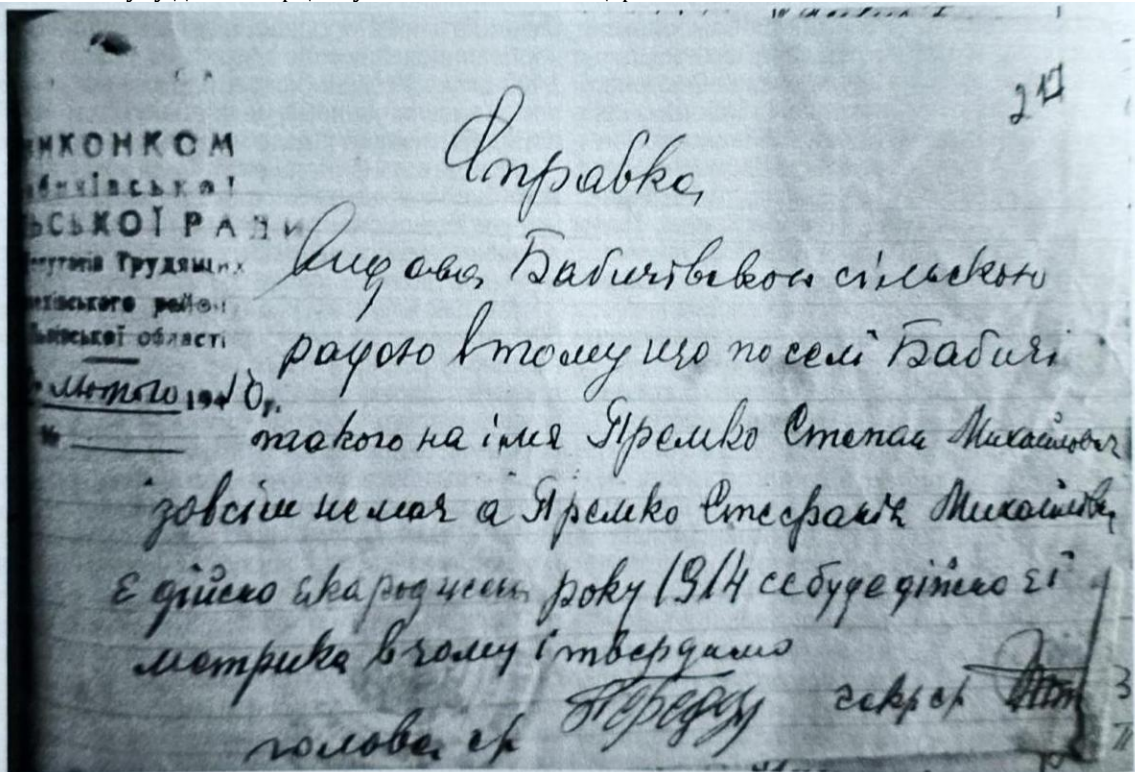 217
ИКОНКОМ
ЬСЬКОЇ РАДИ
Трудящих
район
області
лютого 1940 р.
№
Справка
Видова Бабичівскою сільскою
радою втому що по селі Бабичі
такого на імя Премко Степан Михайлович
зовсім немає а Премко Стефанія Михайлівна
є дійсно яка роджена року 1914 се буде дійсно її
метрика в чому і твердимо
голова ср
секр ср